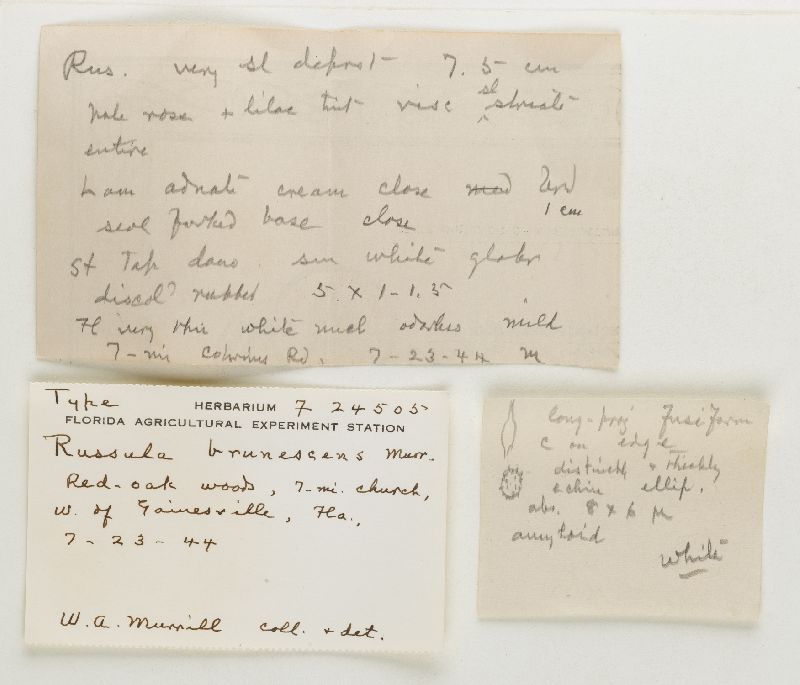 Rus. very sl deprst 7.5 cm
pale rose + lilac tint visc sl striate
entire
Lam adnate cream close med
1 cm
sevl forked base close
St Tap down sm white glabr
discol rubbed 5 x 1-1.5
Fl very thin white unch odorless mild
7-mi Rd. 7-23-44 M
Type HERBARIUM F 24505
FLORIDA AGRICULTURAL EXPERIMENT STATION
Russula brunescens Murr.
Red-oak woods, 7-mi. church,
W. of Gainesville, Fla.,
7-23-44
W.A. Murrill coll. + det.
long-proj fusiform
c on edge
distinctly + thickly
echin ellip.
abt. 8 x 6 µ
amyloid
white